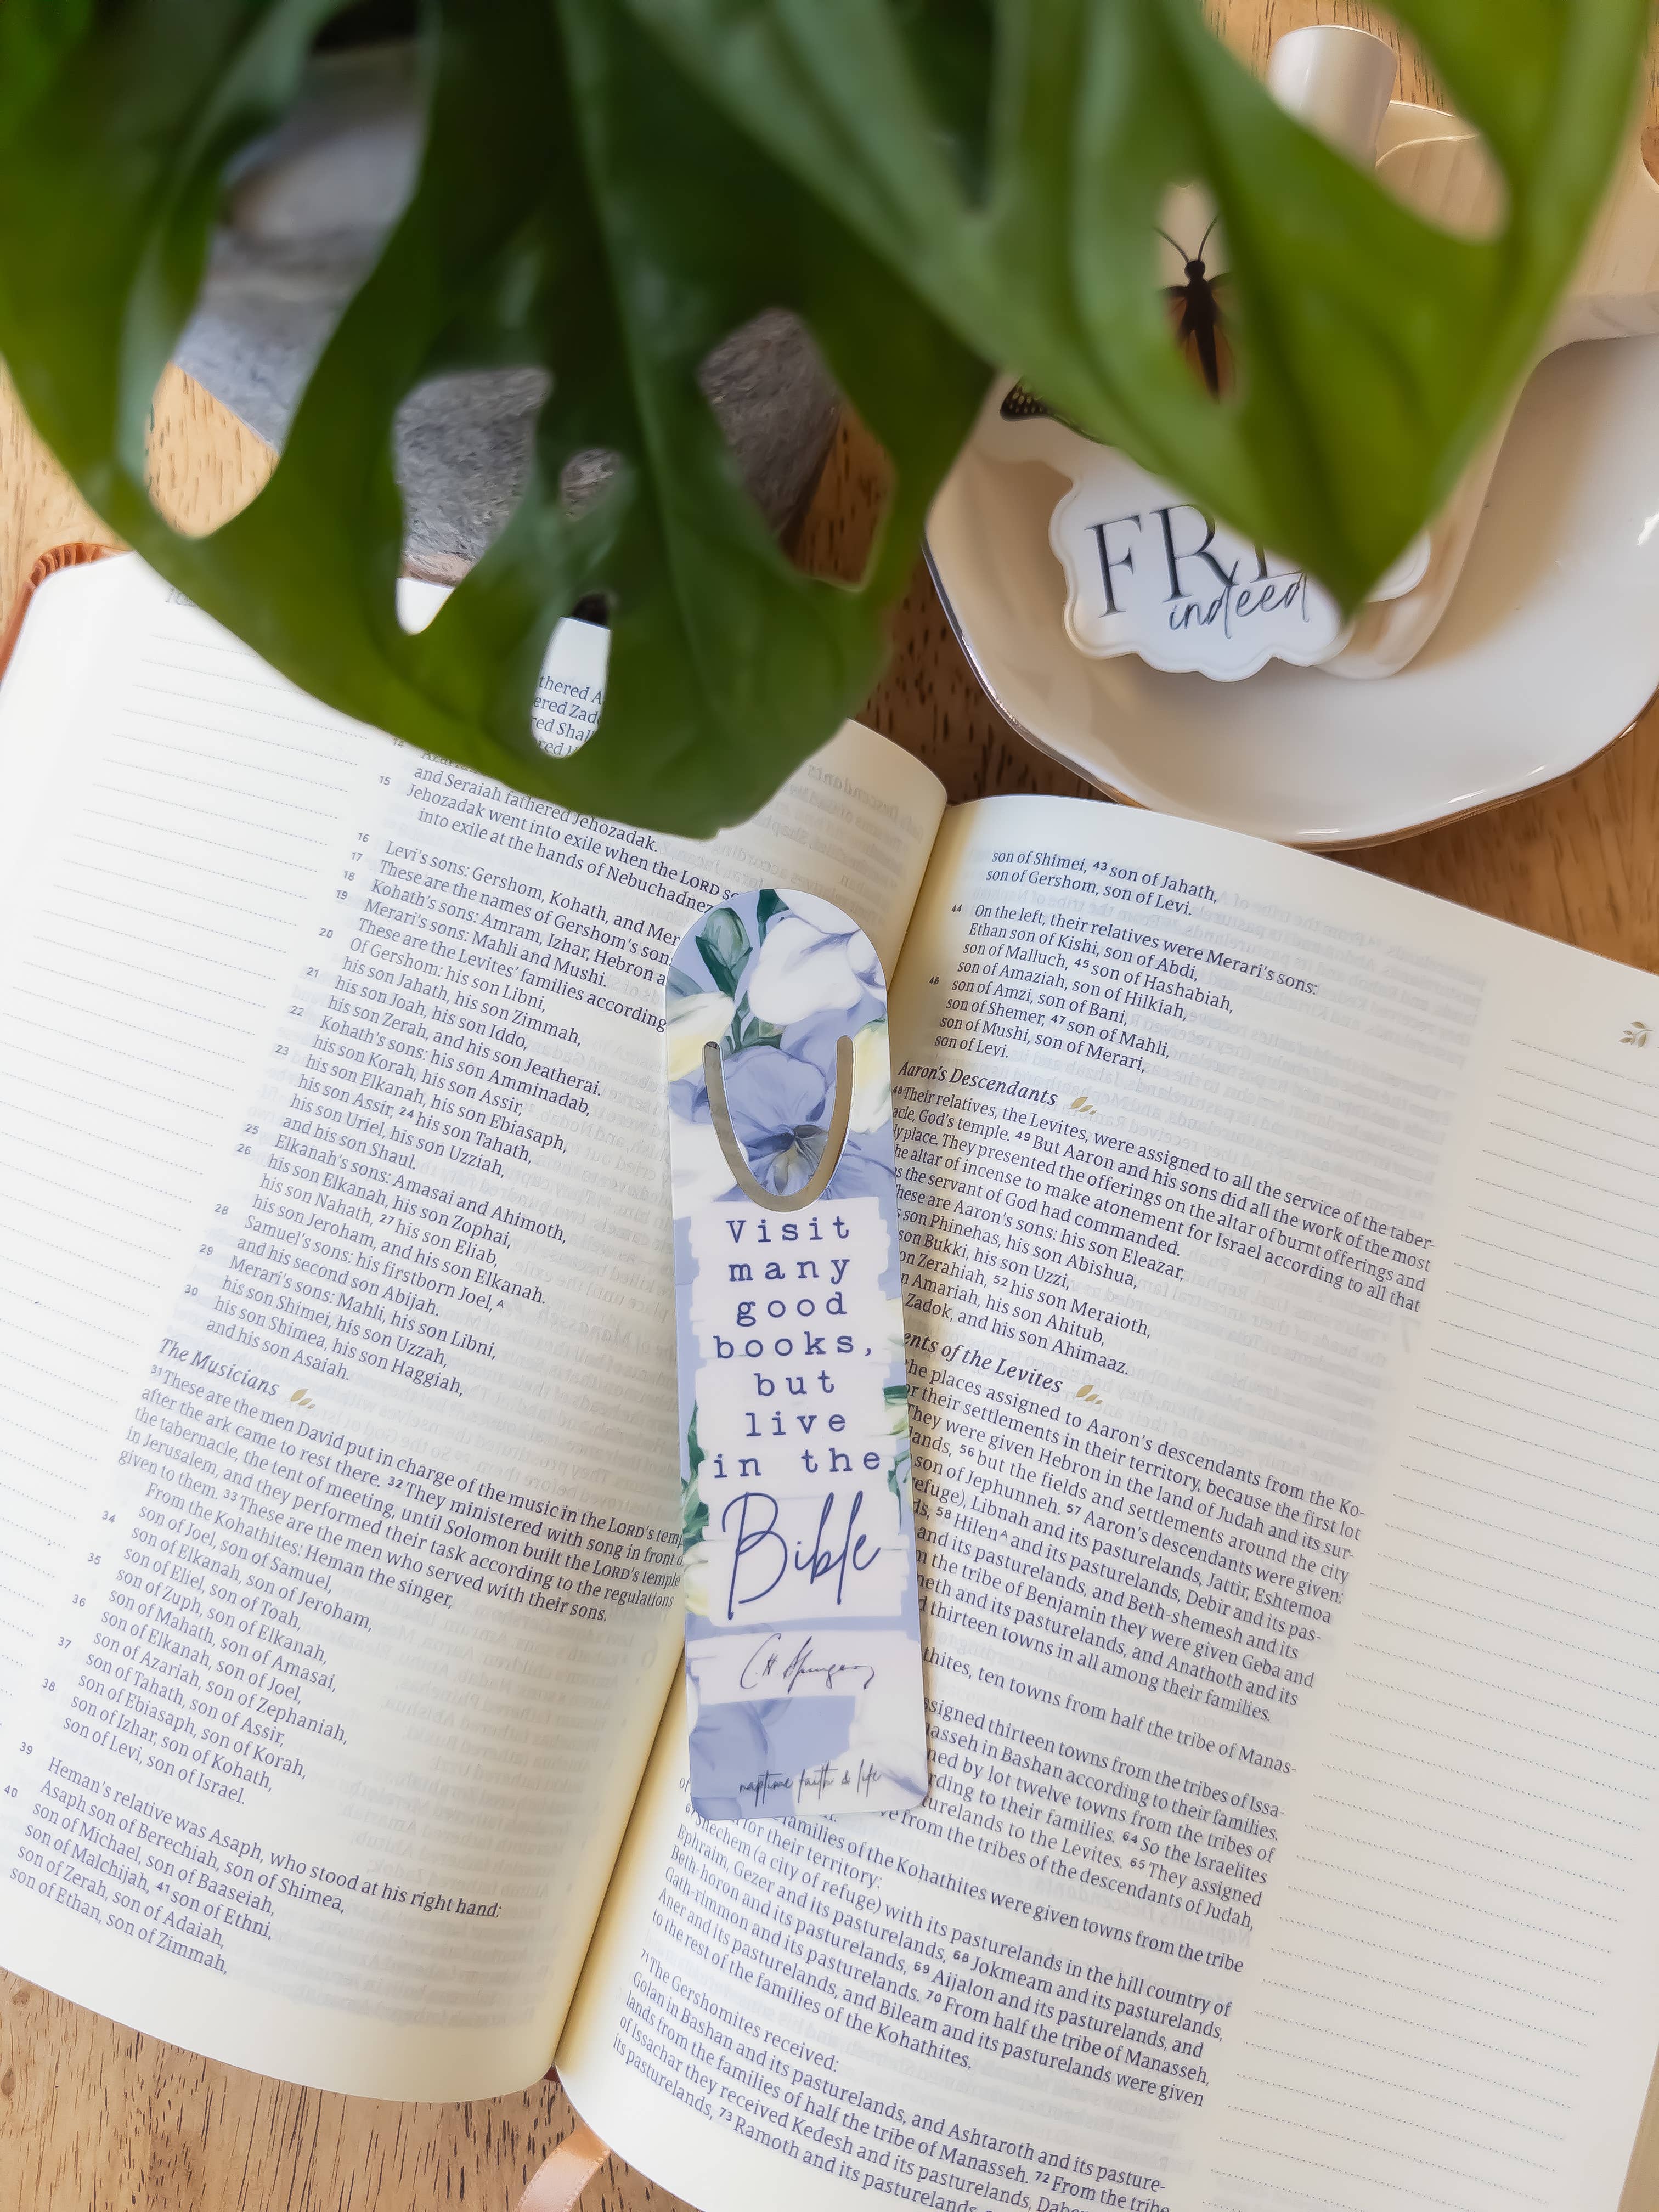 FR
indeed
thered A
ered Zad
red Shal
red
14
15 and Seraiah fathered Jehozadak.
Jehozadak went into exile when the LORD
into exile at the hands of Nebuchadnez
16 Levi's sons: Gershom, Kohath, and Mer
17 These are the names of Gershom's son
18 Kohath's sons: Amram, Izhar, Hebron a
19 Merari's sons: Mahli and Mushi.
These are the Levites' families according
20 Of Gershom: his son Libni,
his son Jahath, his son Zimmah,
21 his son Joah, his son Iddo,
his son Zerah, and his son Jeatherai.
22 Kohath's sons: his son Amminadab,
his son Korah, his son Assir,
23 his son Elkanah, his son Ebiasaph,
his son Assir, 24 his son Tahath,
his son Uriel, his son Uzziah,
and his son Shaul.
25 Elkanah's sons: Amasai and Ahimoth,
26 his son Elkanah, his son Zophai,
his son Nahath, 27 his son Eliab,
his son Jeroham, and his son Elkanah.
28 Samuel's sons: his firstborn Joel, A
and his second son Abijah.
29 Merari's sons: Mahli, his son Libni,
his son Shimei, his son Uzzah,
30 his son Shimea, his son Haggiah,
and his son Asaiah.
The Musicians
31 These are the men David put in charge of the music in the LORD's temp
after the ark came to rest there. 32 They ministered with song in front o
the tabernacle, the tent of meeting, until Solomon built the LORD's temple
in Jerusalem, and they performed their task according to the regulations
given to them. 33 These are the men who served with their sons.
From the Kohathites: Heman the singer,
son of Joel, son of Samuel,
34 son of Elkanah, son of Jeroham,
son of Eliel, son of Toah,
35 son of Zuph, son of Elkanah,
son of Mahath, son of Amasai,
36 son of Elkanah, son of Joel,
son of Azariah, son of Zephaniah,
37 son of Tahath, son of Assir,
son of Ebiasaph, son of Korah,
38 son of Izhar, son of Kohath,
son of Levi, son of Israel.
39 Heman's relative was Asaph, who stood at his right hand:
Asaph son of Berechiah, son of Shimea,
40 son of Michael, son of Baaseiah,
son of Malchijah, 41 son of Ethni,
son of Zerah, son of Adaiah,
son of Ethan, son of Zimmah,
Visit
many
good
books,
but
live
in the
Bible
C.H Spurgeon
naptime faith & life
son of Shimei, 43 son of Jahath,
son of Gershom, son of Levi.
44 On the left, their relatives were Merari's sons:
Ethan son of Kishi, son of Abdi,
son of Malluch, 45 son of Hashabiah,
son of Amaziah, son of Hilkiah,
46 son of Amzi, son of Bani,
son of Shemer, 47 son of Mahli,
son of Mushi, son of Merari,
son of Levi.
Aaron's Descendants
48 Their relatives, the Levites, were assigned to all the service of the taber-
acle, God's temple. 49 But Aaron and his sons did all the work of the most
ly place. They presented the offerings on the altar of burnt offerings and
he altar of incense to make atonement for Israel according to all that
s the servant of God had commanded.
hese are Aaron's sons: his son Eleazar,
son Phinehas, his son Abishua,
son Bukki, his son Uzzi,
on Zerahiah, 52 his son Meraioth,
n Amariah, his son Ahitub,
Zadok, and his son Ahimaaz.
ents of the Levites
he places assigned to Aaron's descendants from the Ko-
r their settlements in their territory, because the first lot
They were given Hebron in the land of Judah and its sur-
lands, 56 but the fields and settlements around the city
son of Jephunneh. 57 Aaron's descendants were given:
efuge), Libnah and its pasturelands, Jattir, Eshtemoa
ds, 58 Hilen A and its pasturelands, Debir and its pas-
and its pasturelands, and Beth-shemesh and its
n the tribe of Benjamin they were given Geba and
eth and its pasturelands, and Anathoth and its
d thirteen towns in all among their families.
thites, ten towns from half the tribe of Manas-
ssigned thirteen towns from the tribes of Issa-
asseh in Bashan according to their families.
ned by lot twelve towns from the tribes of
rding to their families. 64 So the Israelites
turelands to the Levites. 65 They assigned
ve from the tribes of the descendants of Judah,
of
families of the Kohathites were given towns from the tribe
for their territory:
67 Shechem (a city of refuge) with its pasturelands in the hill country of
Ephraim, Gezer and its pasturelands, 68 Jokmeam and its pasturelands,
Beth-horon and its pasturelands, 69 Aijalon and its pasturelands, and
Gath-rimmon and its pasturelands. 70 From half the tribe of Manasseh,
Aner and its pasturelands, and Bileam and its pasturelands were given
to the rest of the families of the Kohathites.
71 The Gershomites received:
Golan in Bashan and its pasturelands, and Ashtaroth and its pasture-
lands from the families of half the tribe of Manasseh. 72 From the tribe
of Issachar they received Kedesh and its pasturelands,
its pasturelands, 73 Ramoth and its pasturelands,